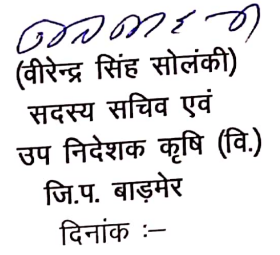 (वीरेन्द्र सिंह सोलंकी)
सदस्य सचिव एवं
उप निदेशक कृषि (वि.)
जि.प. बाड़मेर
दिनांक :–